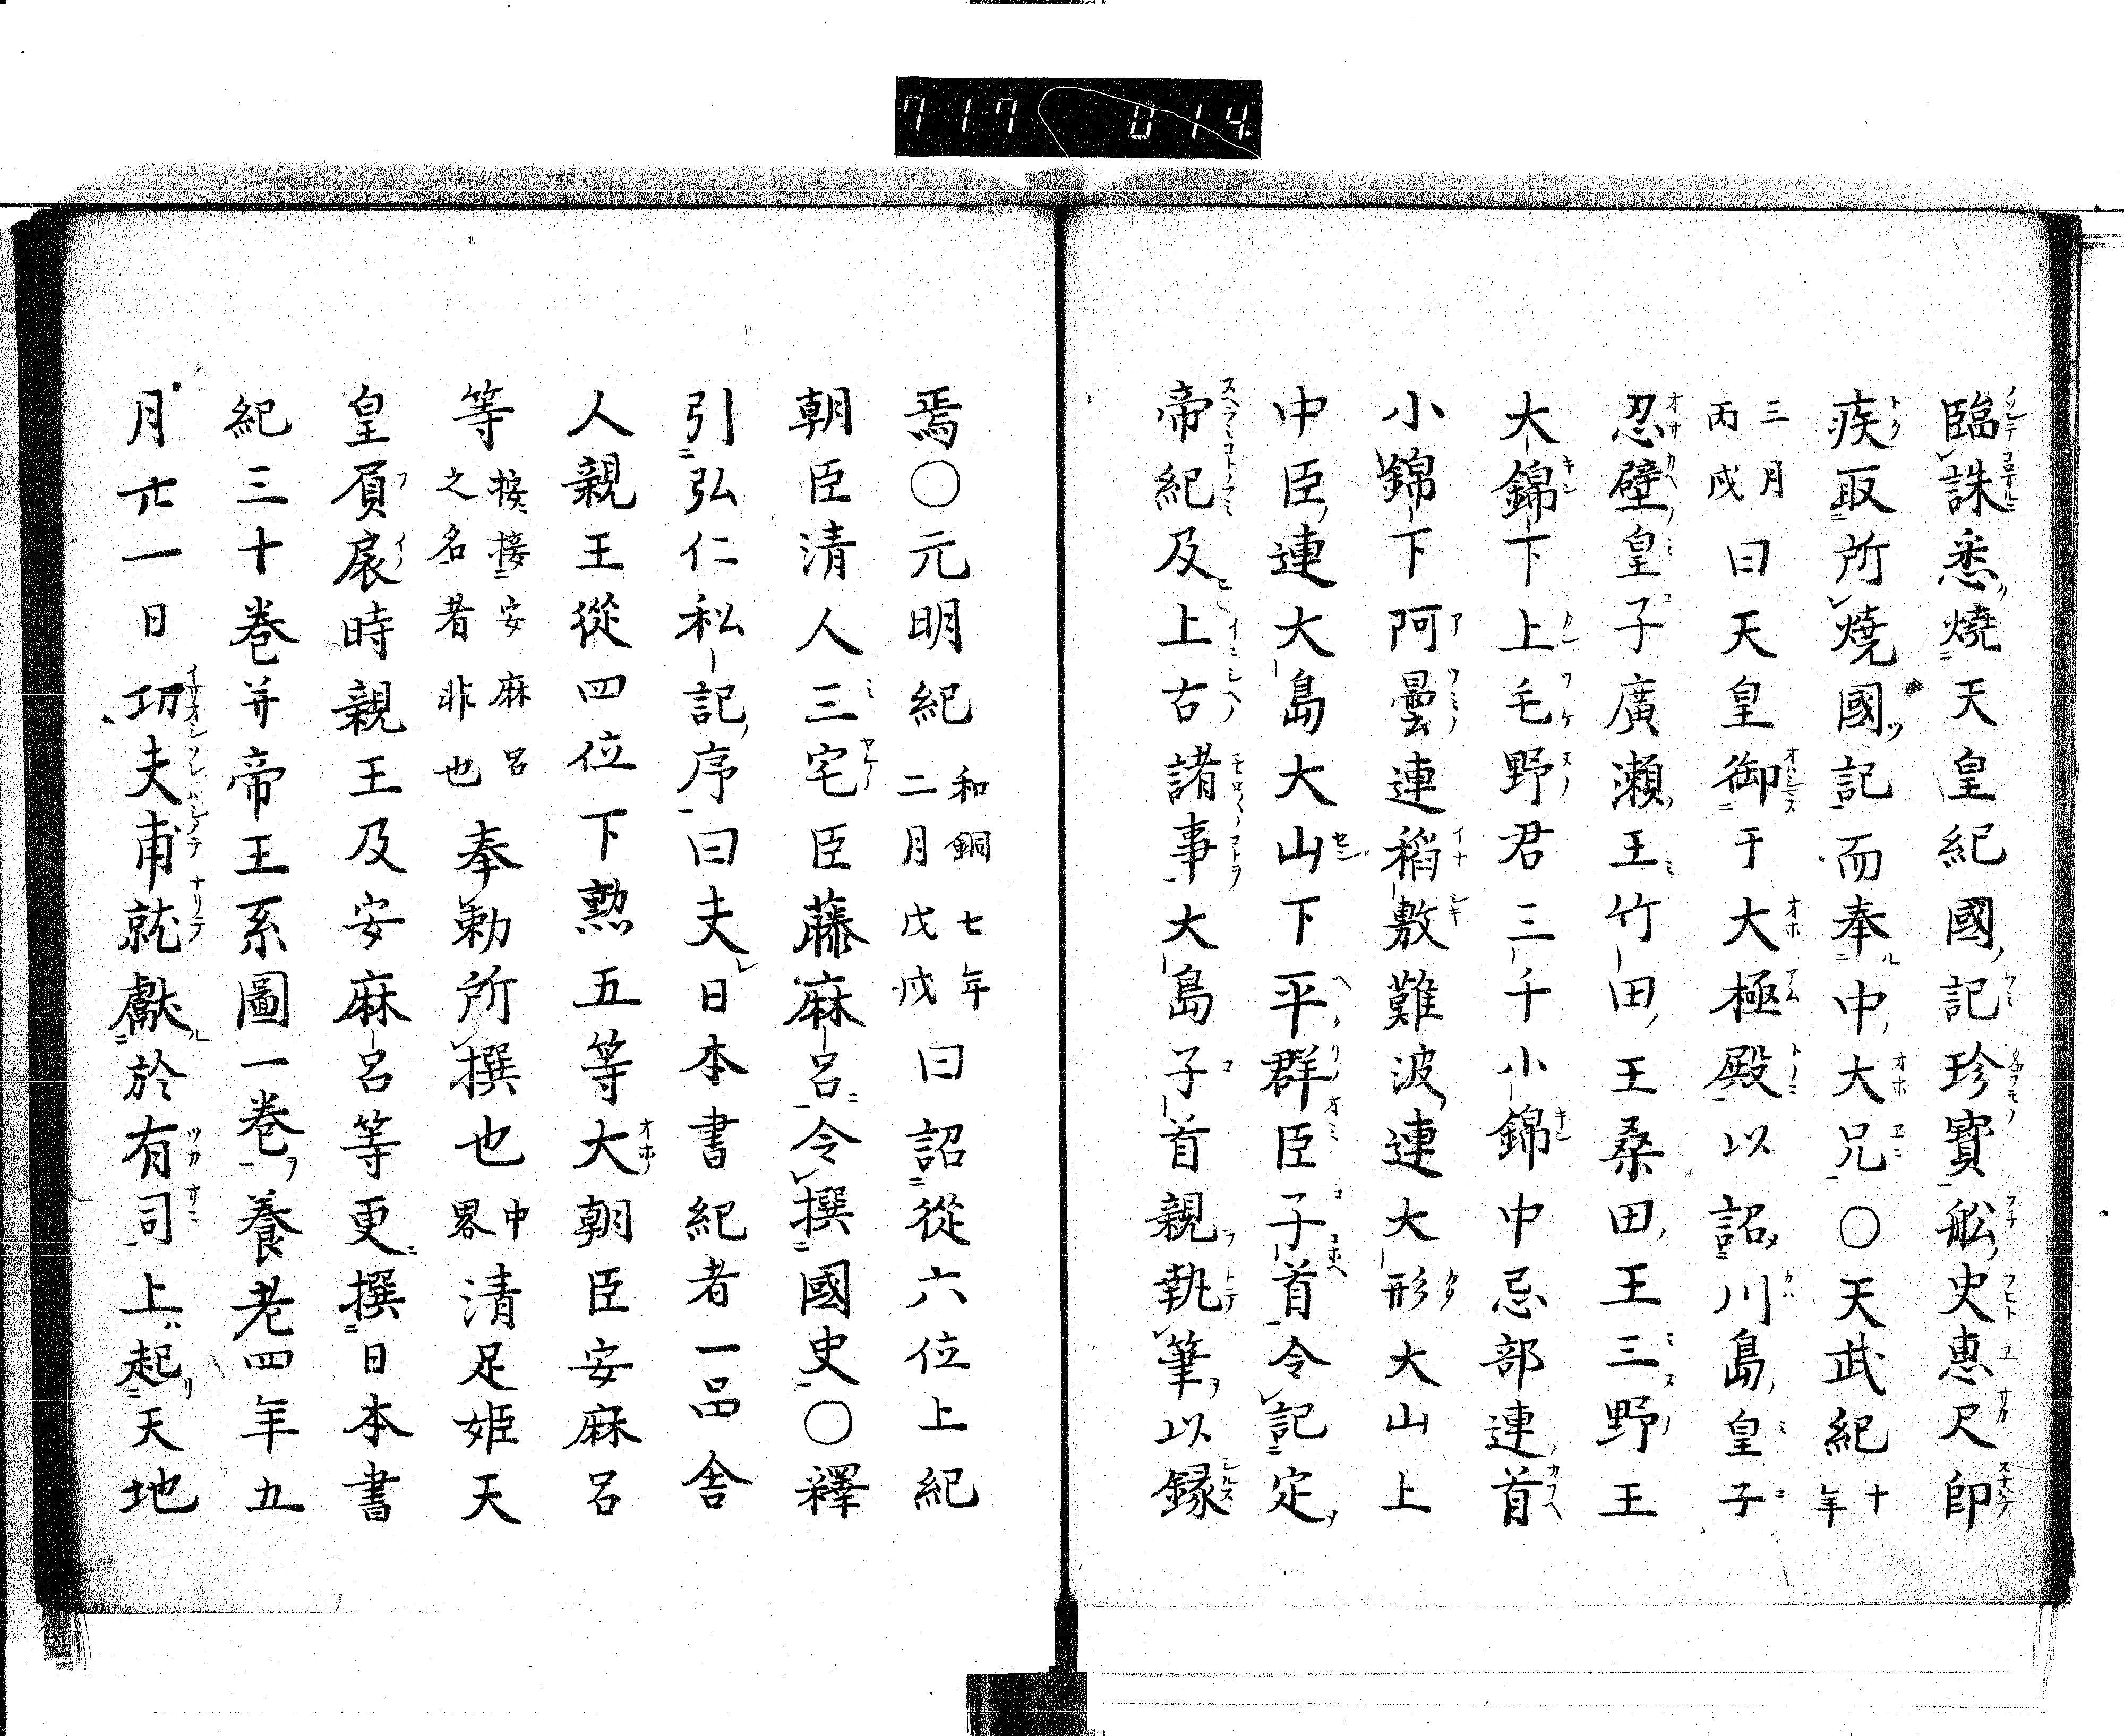 717 014
臨誅悉燒天皇紀國記珍寶舩史惠尺即
疾取所燒國記而奉中大兄〇天武紀十年
三月丙戌曰天皇御于大極殿以詔川島皇子
忍壁皇子廣瀨王竹田王桑田王三野王
大錦下上毛野君三千小錦中忌部連首
小錦下阿曇連稻敷難波連大形大山上
中臣連大島大山下平群臣子首令記定
帝紀及上古諸事大島子首親執筆以録
焉〇元明紀和銅七年二月戊戌曰詔從六位上紀
朝臣清人三宅臣藤麻呂令撰國史〇釋
引弘仁私記序曰夫日本書紀者一品舍
人親王從四位下勲五等大朝臣安麻呂
等接安麻呂之名者非也奉勅所撰也中畧清足姫天
皇負扆時親王及安麻呂等更撰日本書
紀三十卷并帝王系圖一卷養老四年五
月廿一日功夫甫就獻於有司上起天地